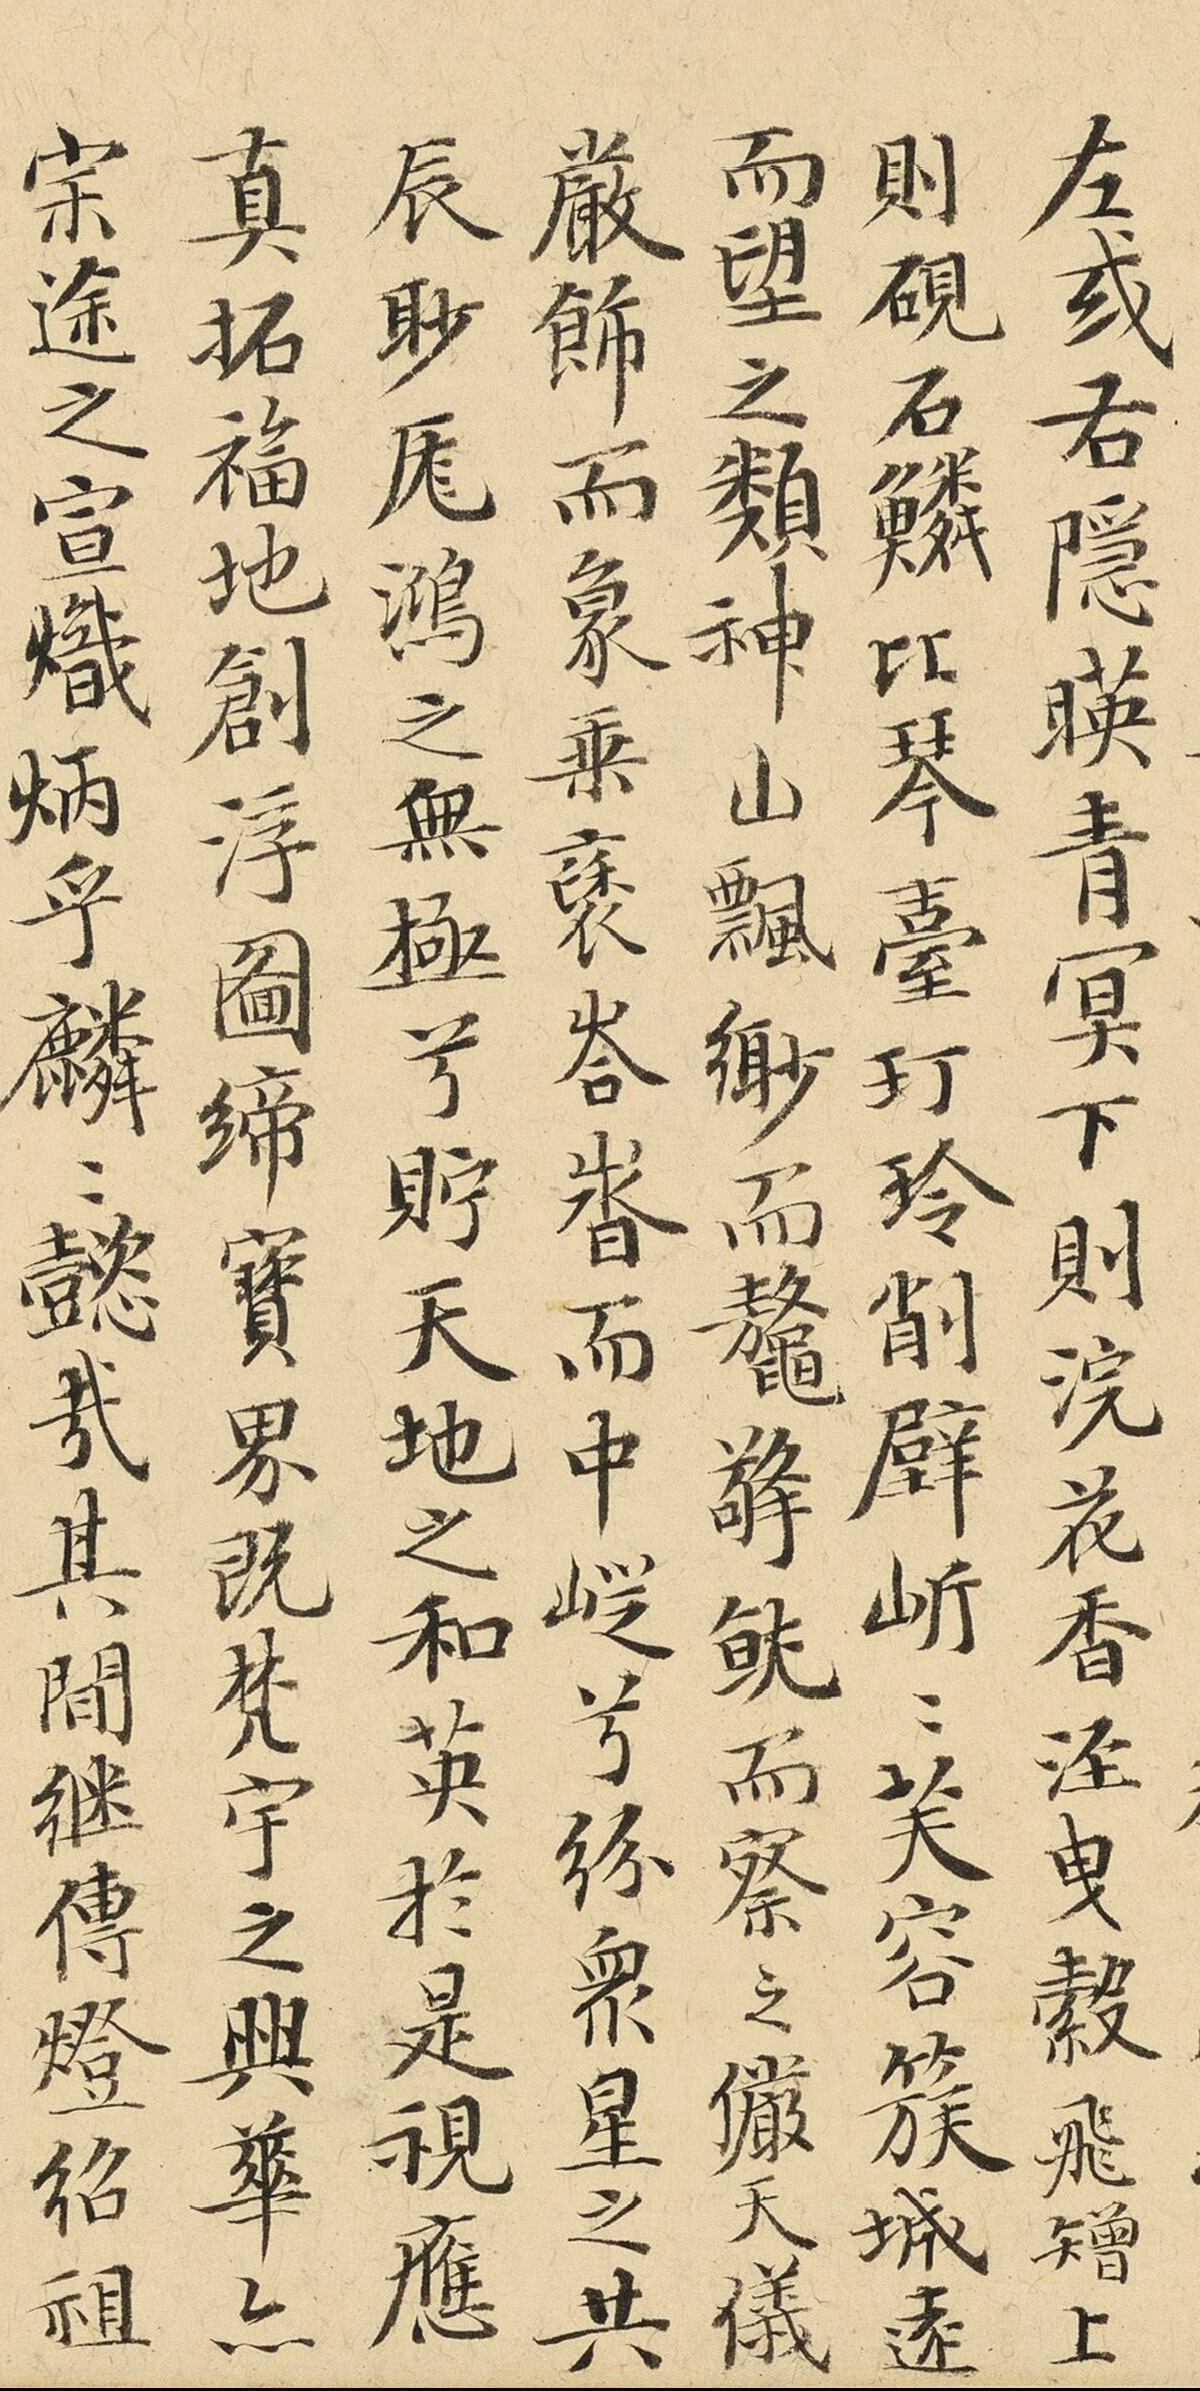 左或右隱暎青冥下則浣花香泾曳縠飛矰上
則硯石鱗比琴臺玎玲削壁岓〻芙容簇城遠
而望之類神山飄緲而鼇擎能而察之儼天儀
嚴飾而象乘褒峇㟯而中嵸兮紛衆星之共
辰眇厖鴻之無極兮貯天地之和英於是視應
真拓福地創浮圖締寶界既梵宇之興華亦
宗途之宣熾炳乎麟〻懿哉其間継傳燈紹祖